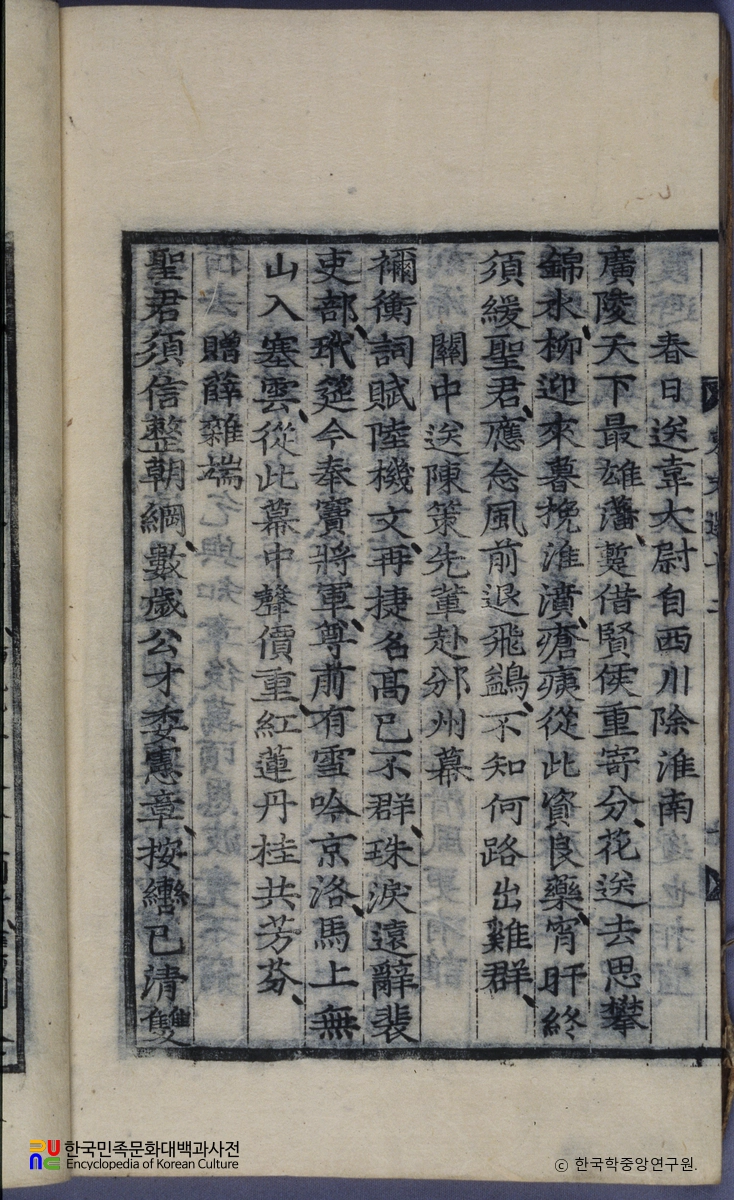 春日送韋大尉自西川除淮南
廣陵天下最雄藩、蹔借賢侯重寄分、花送去思攀
錦水、柳迎來暮挽淮濆、瘡痍從此資良藥、宵旰終
須緩聖君、應念風前退飛鷁、不知何路出雞群、
關中送陳策先輩赴邠州幕
禰衡詞賦陸機文、再捷名高已不群、珠淚遠辭裴
吏部、玳筵今奉竇將軍、尊前有雪吟京洛、馬上無
山入塞雲、從此幕中聲價重、紅蓮丹桂共芳芬、
贈薛雜端
聖君須信整朝綱、數歲公才委憲章、按轡已清雙
한국민족문화대백과사전
Encyclopedia of Korean Culture
ⓒ 한국학중앙연구원.